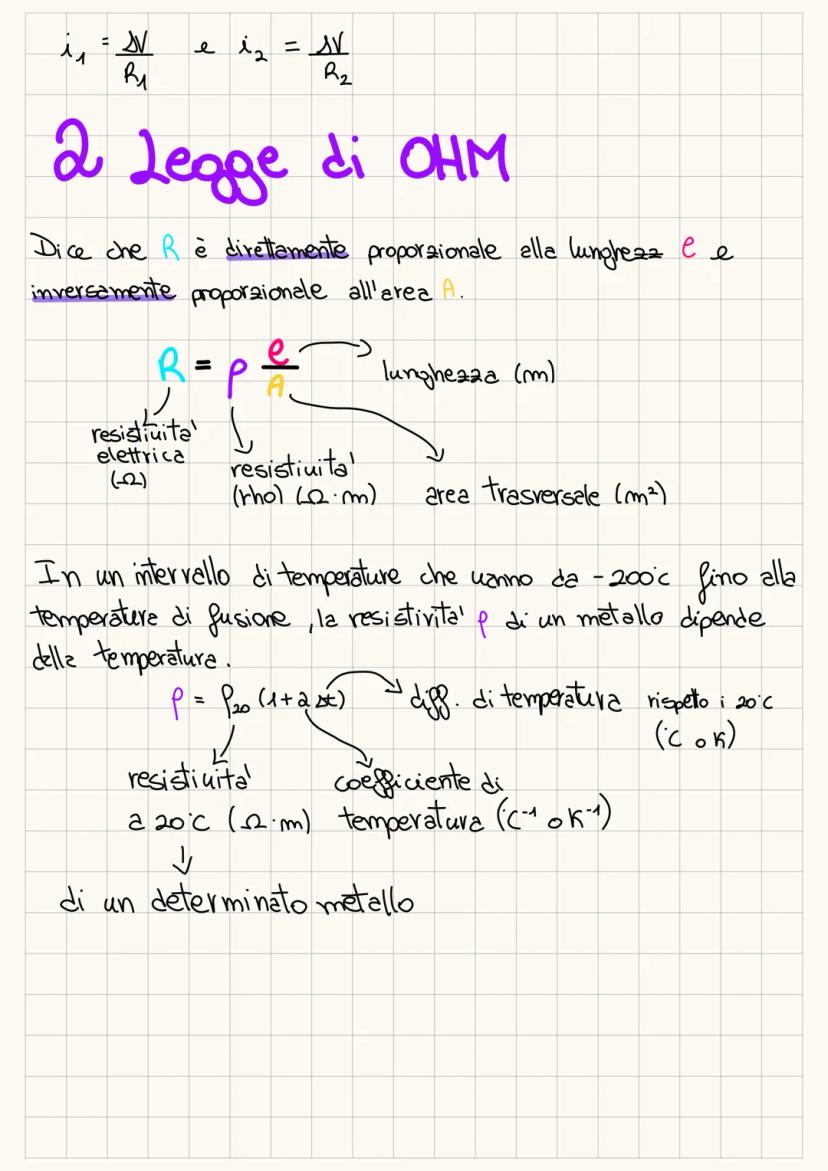 i₁ = ΔV/R₁ e i₂ = ΔV/R₂
2 Legge di OHM
Dice che R è direttamente proporzionale alla lunghezz l e
inversamente proporzionale all'area A.
R = ρ l/A → lunghezza (m)
resistività
elettrica
(Ω)
resistività
(rho) (Ω·m)
area trasversale (m²)
In un intervallo di temperature che vanno da -200°c fino alla
temperature di fusione, la resistività ρ di un metallo dipende
della temperatura.
ρ = ρ₂₀ (1+α Δt) → diff. di temperatura rispetto i 20°C
(°C o K)
resistività
a 20°C (Ω·m)
coefficiente di
temperatura (°C⁻¹ o K⁻¹)
↓
di un determinato metallo